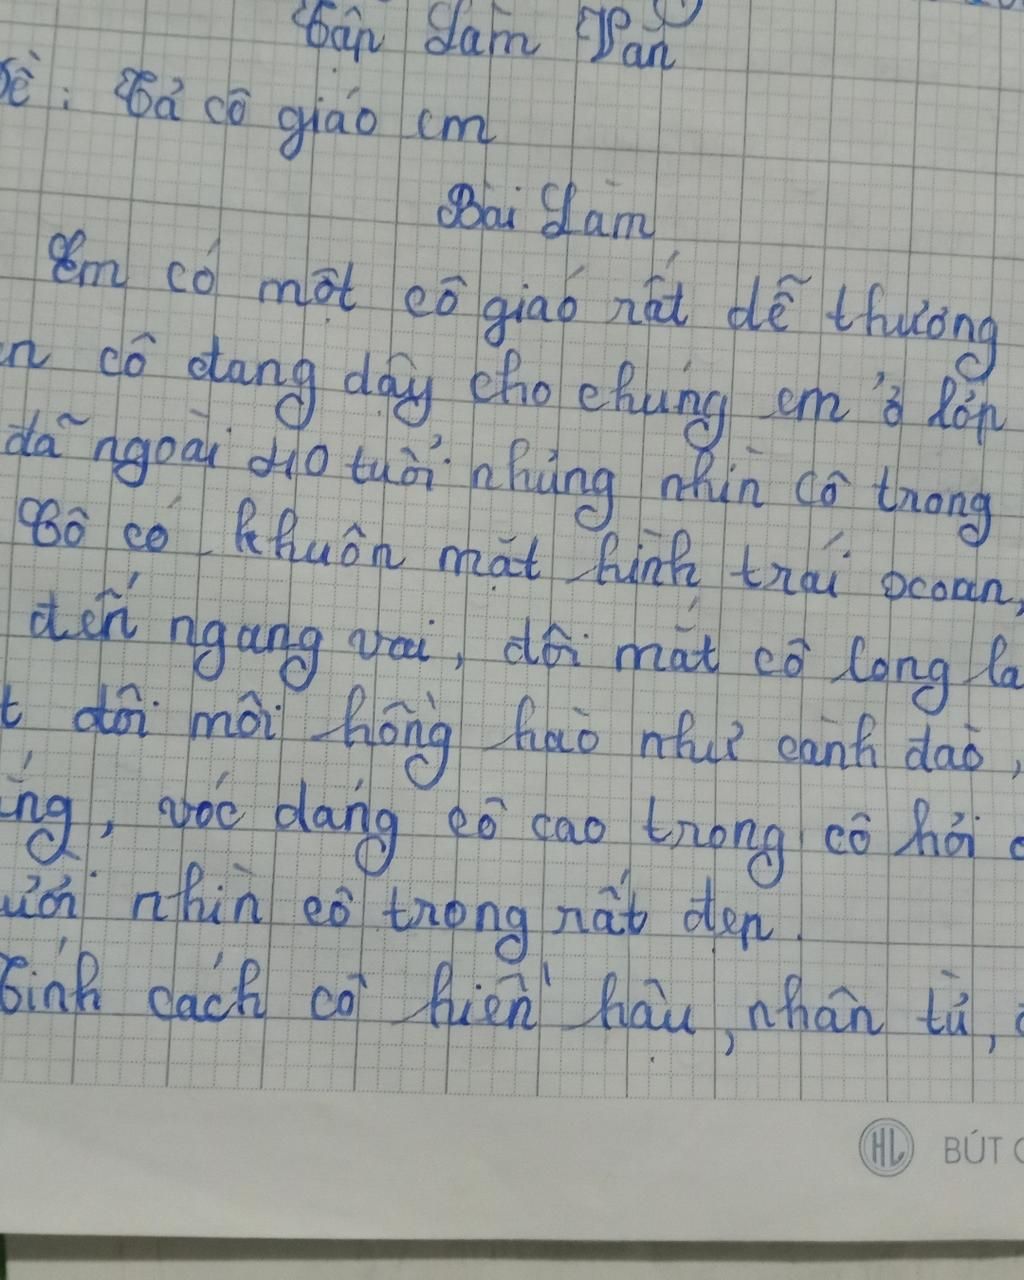 Tập Làm Văn
Đề: Tả cô giáo em
Bài Làm
Em có một cô giáo rất dễ thương
cô đang dạy cho chúng em ở lớp
đã ngoài 40 tuổi nhưng nhìn cô trong
Cô có khuôn mặt hình trái xoan,
đến ngang vai, đôi mắt cô long la
đôi môi hồng hào như cành đào,
vóc dáng cô cao trong cô hơi
nhìn cô trong rất đẹp.
Tính cách cô hiền hậu, nhân từ,
HL BÚT